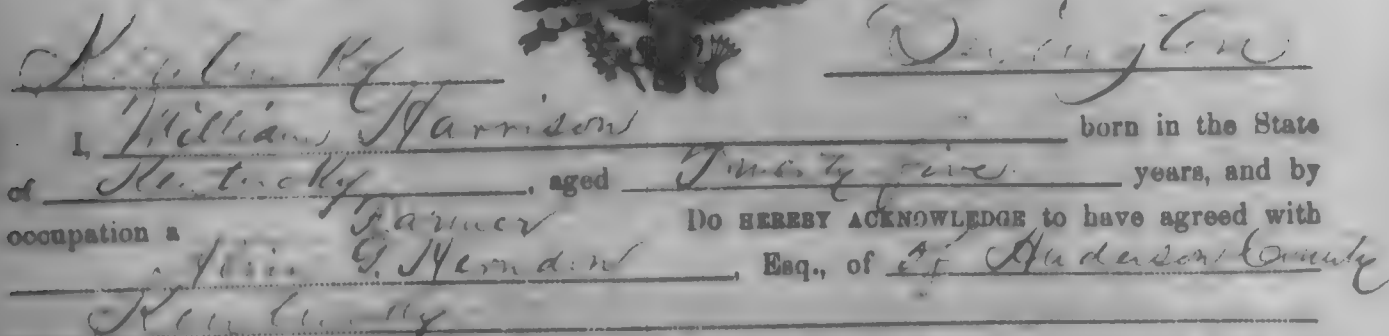 Kentucky
I, William Harrison born in the State
of Kentucky, aged Twenty five years, and by
occupation a Farmer Do HEREBY ACKNOWLEDGE to have agreed with
G. Herndon, Esq., of Anderson County
Kentucky